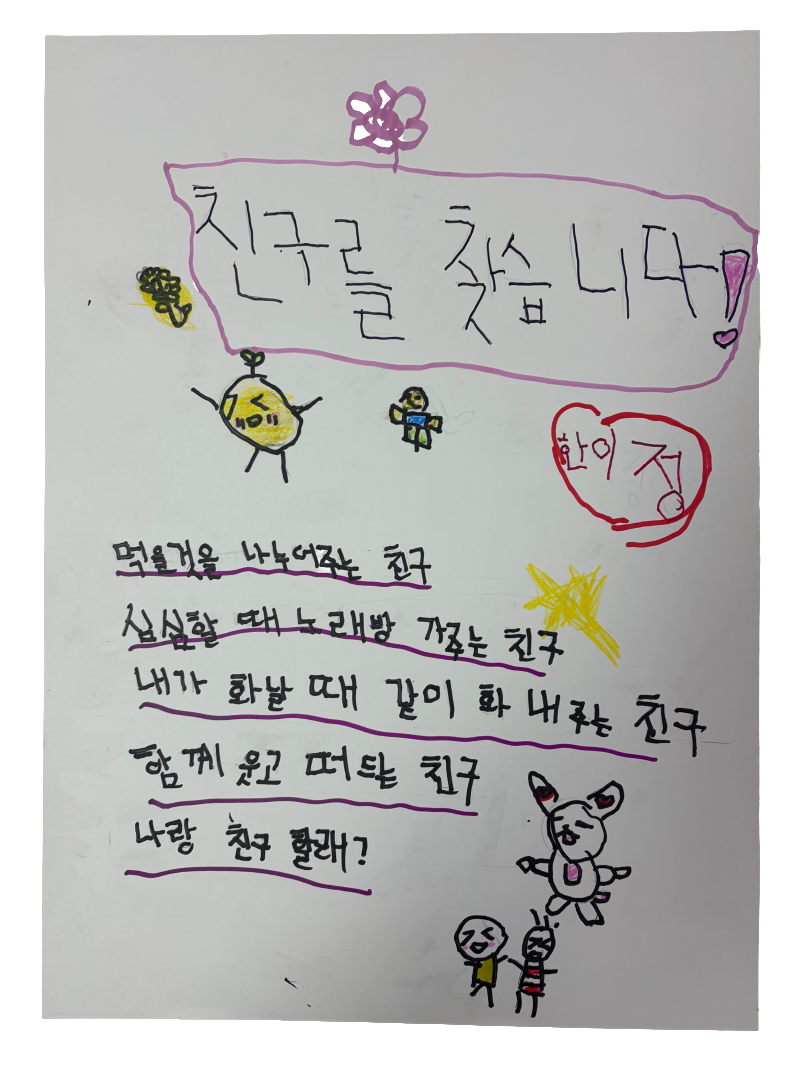 친구를 찾습니다!
한이정
먹을것을 나누어주는 친구
심심할 때 노래방 가주는 친구
내가 화날 때 같이 화 내 주는 친구
함께 웃고 떠드는 친구
나랑 친구 할래?